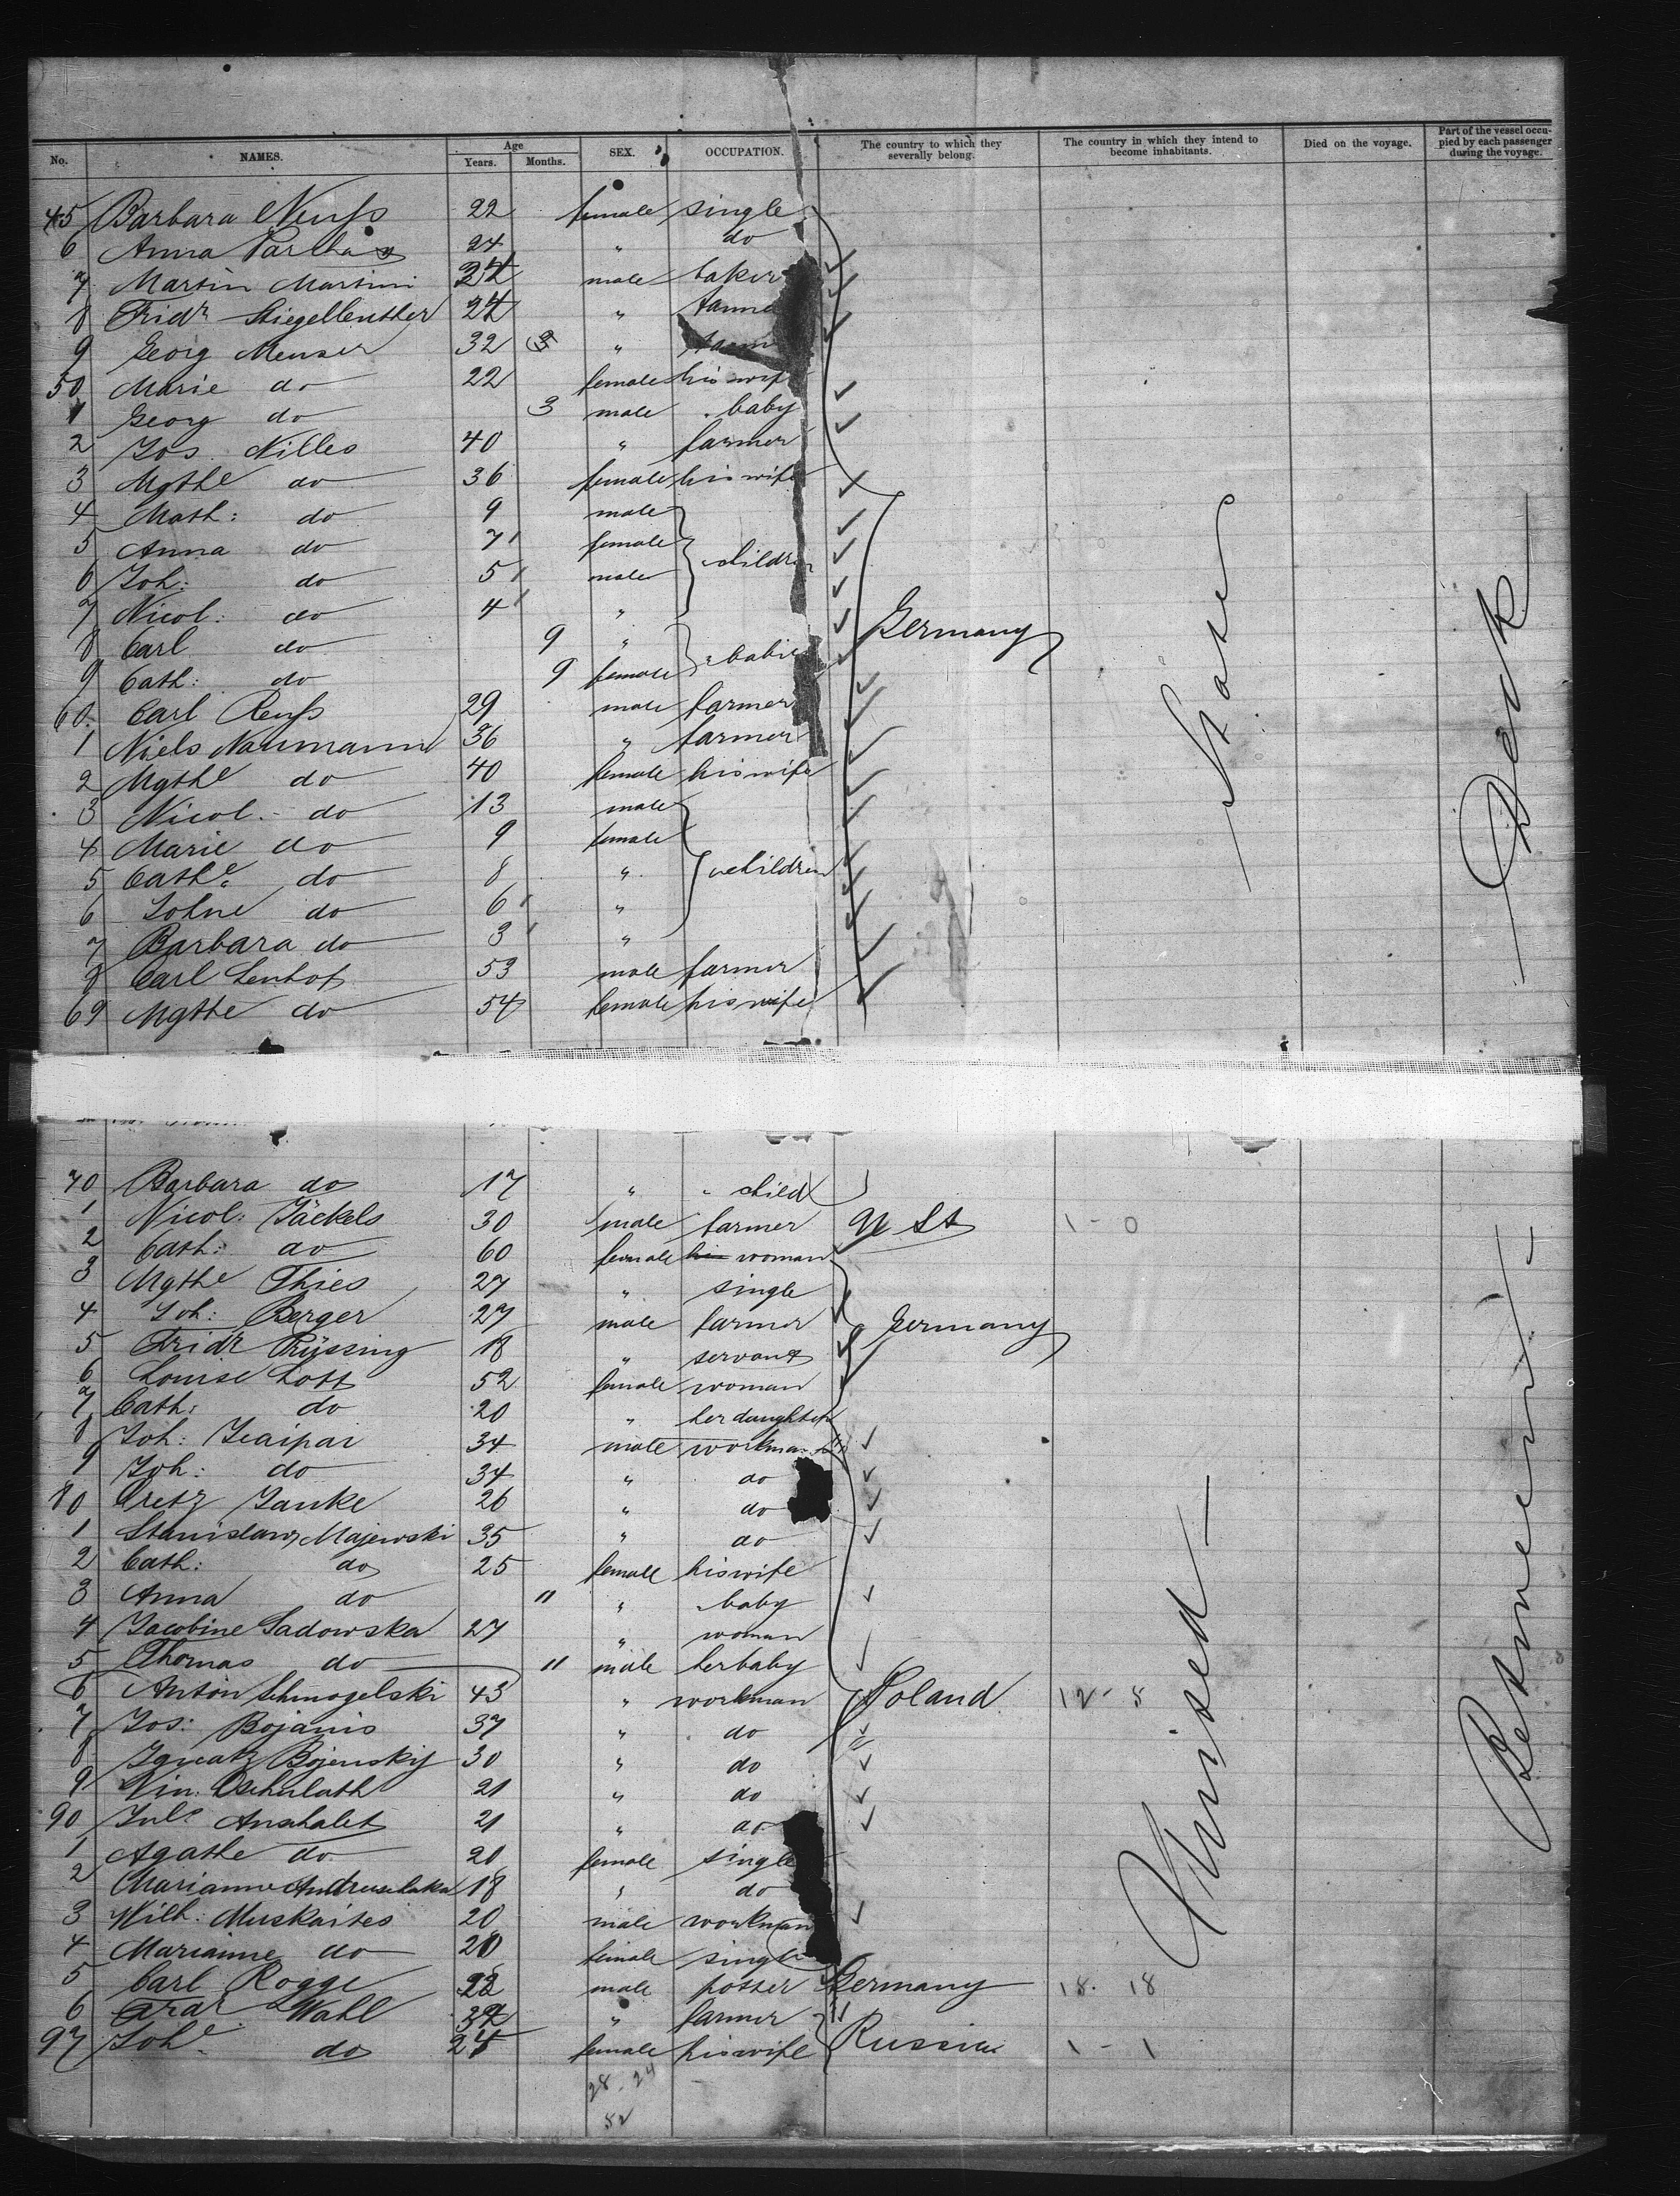 No. NAMES. Age Years. Months. SEX. OCCUPATION. The country to which they severally belong. The country in which they intend to become inhabitants. Died on the voyage. Part of the vessel occupied by each passenger during the voyage.
45 Barbara Neuss 22 female single
6 Anna 24 " do
7 Martin Martini male baker
8 Fridr Stiegellenther 24 "
9 Georg Meuser 32 "
50 Marie do 22 female his wife
1 Georg do 3 male baby
2 Jos. Nilles 40 " farmer
3 Mgthe do 36 female his wife
4 Math: do 9 male
5 Anna do 7 female children
6 Joh: do 5 male
7 Nicol: do 4 " Germany
8 Carl do 9 "
9 Cath: do 9 female babies
60 Carl Reuss 29 male farmer
1 Niels Naumann 36 " farmer
2 Mgthe do 40 female his wife
3 Nicol. do 13 male
4 Marie do 9 female
5 Cathe do 8 " children
6 Johne do 6 "
7 Barbara do 3 "
8 Carl Lenhof 53 male farmer
69 Mgthe do 54 female his wife
70 Barbara do 17 " child
1 Nicol: Jäckels 30 male farmer U St 1 - 0
2 Cath: do 60 female his woman
3 Mgthe Thies 27 " single
4 Joh: Berger 27 male farmer Germany
5 Fridr Rüssing 18 " servant
6 Louise Lott 52 female woman
7 Cath: do 20 " her daughter
8 Joh: 34 male workman
9 Joh: do 34 " do
80 Janke 26 " do
1 Stanislaw Majewski 35 " do
2 Cath: do 25 female his wife
3 Anna do 11 " baby
4 Jacobine Sadowska 27 " woman
5 Thomas do 11 male her baby
6 Anton Schmogelski 43 " workman Poland 12 - 8
7 Jos: Bojanis 37 " do
8 Ignatz Bojenskij 30 " do
9 Vin. 21 " do
90 Anshalet 21 " do
1 Agathe do 20 female single
2 Marianne 18 " do
3 Wilh: Muskaites 20 male workman
4 Marianne do 20 female single
5 Carl Rogge 22 male potter Germany 18. 18
6 Wahl " farmer
97 Johe do 24 female his wife Russia 1 - 1
28 - 24
52
United States
Between Deck